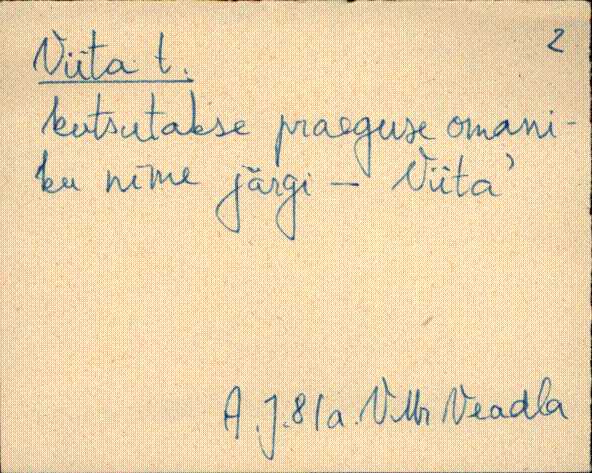 2
Viita t.
kutsutakse praeguse omani-
ku nime järgi – Viita'
A. J. 81a. VMr Veadla